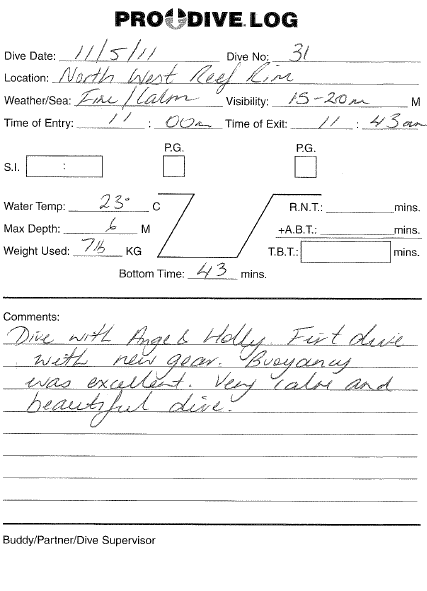 PRO DIVE. LOG
Dive Date: 11/5/11 Dive No: 31
Location: North West Reef Rim
Weather/Sea: Fine/Calm Visibility: 15-20m M
Time of Entry: 11 : 00am Time of Exit: 11 : 43am
P.G. P.G.
S.I. :
Water Temp: 23° C R.N.T.: mins.
Max Depth: 6 M +A.B.T.: mins.
Weight Used: 7lb KG T.B.T.: mins.
Bottom Time: 43 mins.
Comments:
Dive with Ange & Holly. First dive
with new gear. Buoyancy
was excellent. Very calm and
beautiful dive.
Buddy/Partner/Dive Supervisor